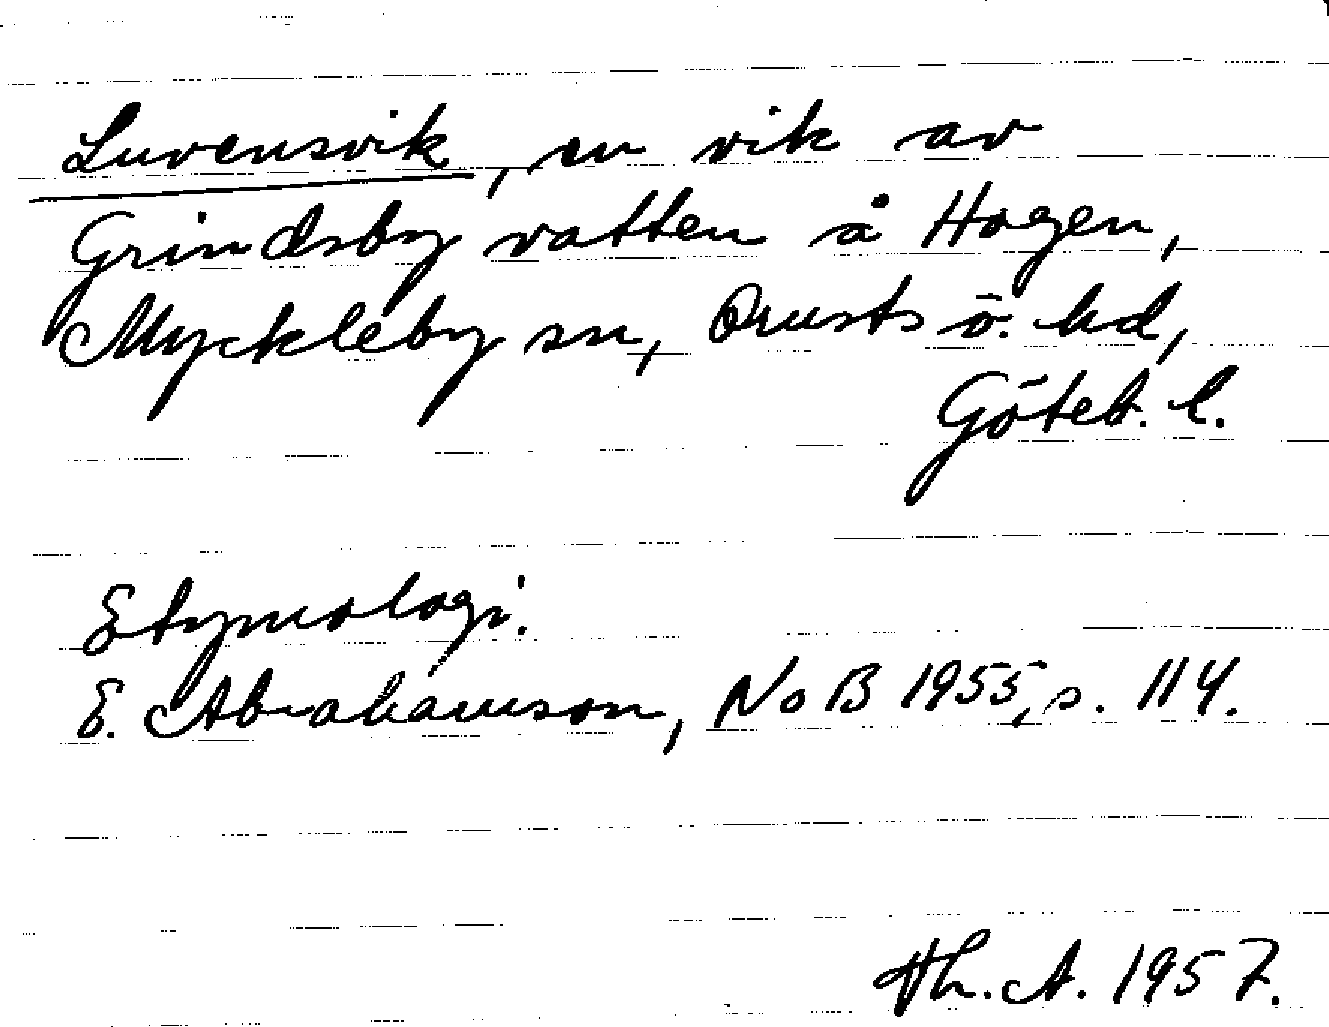 Luvensvik, en vik av
Grindsby vatten å Hogen,
Myckleby sn, Orusts ö. hd,
Göteb. l.
Etymologi.
E. Abrahamson, NoB 1955, s. 114.
Hh. A. 1957.